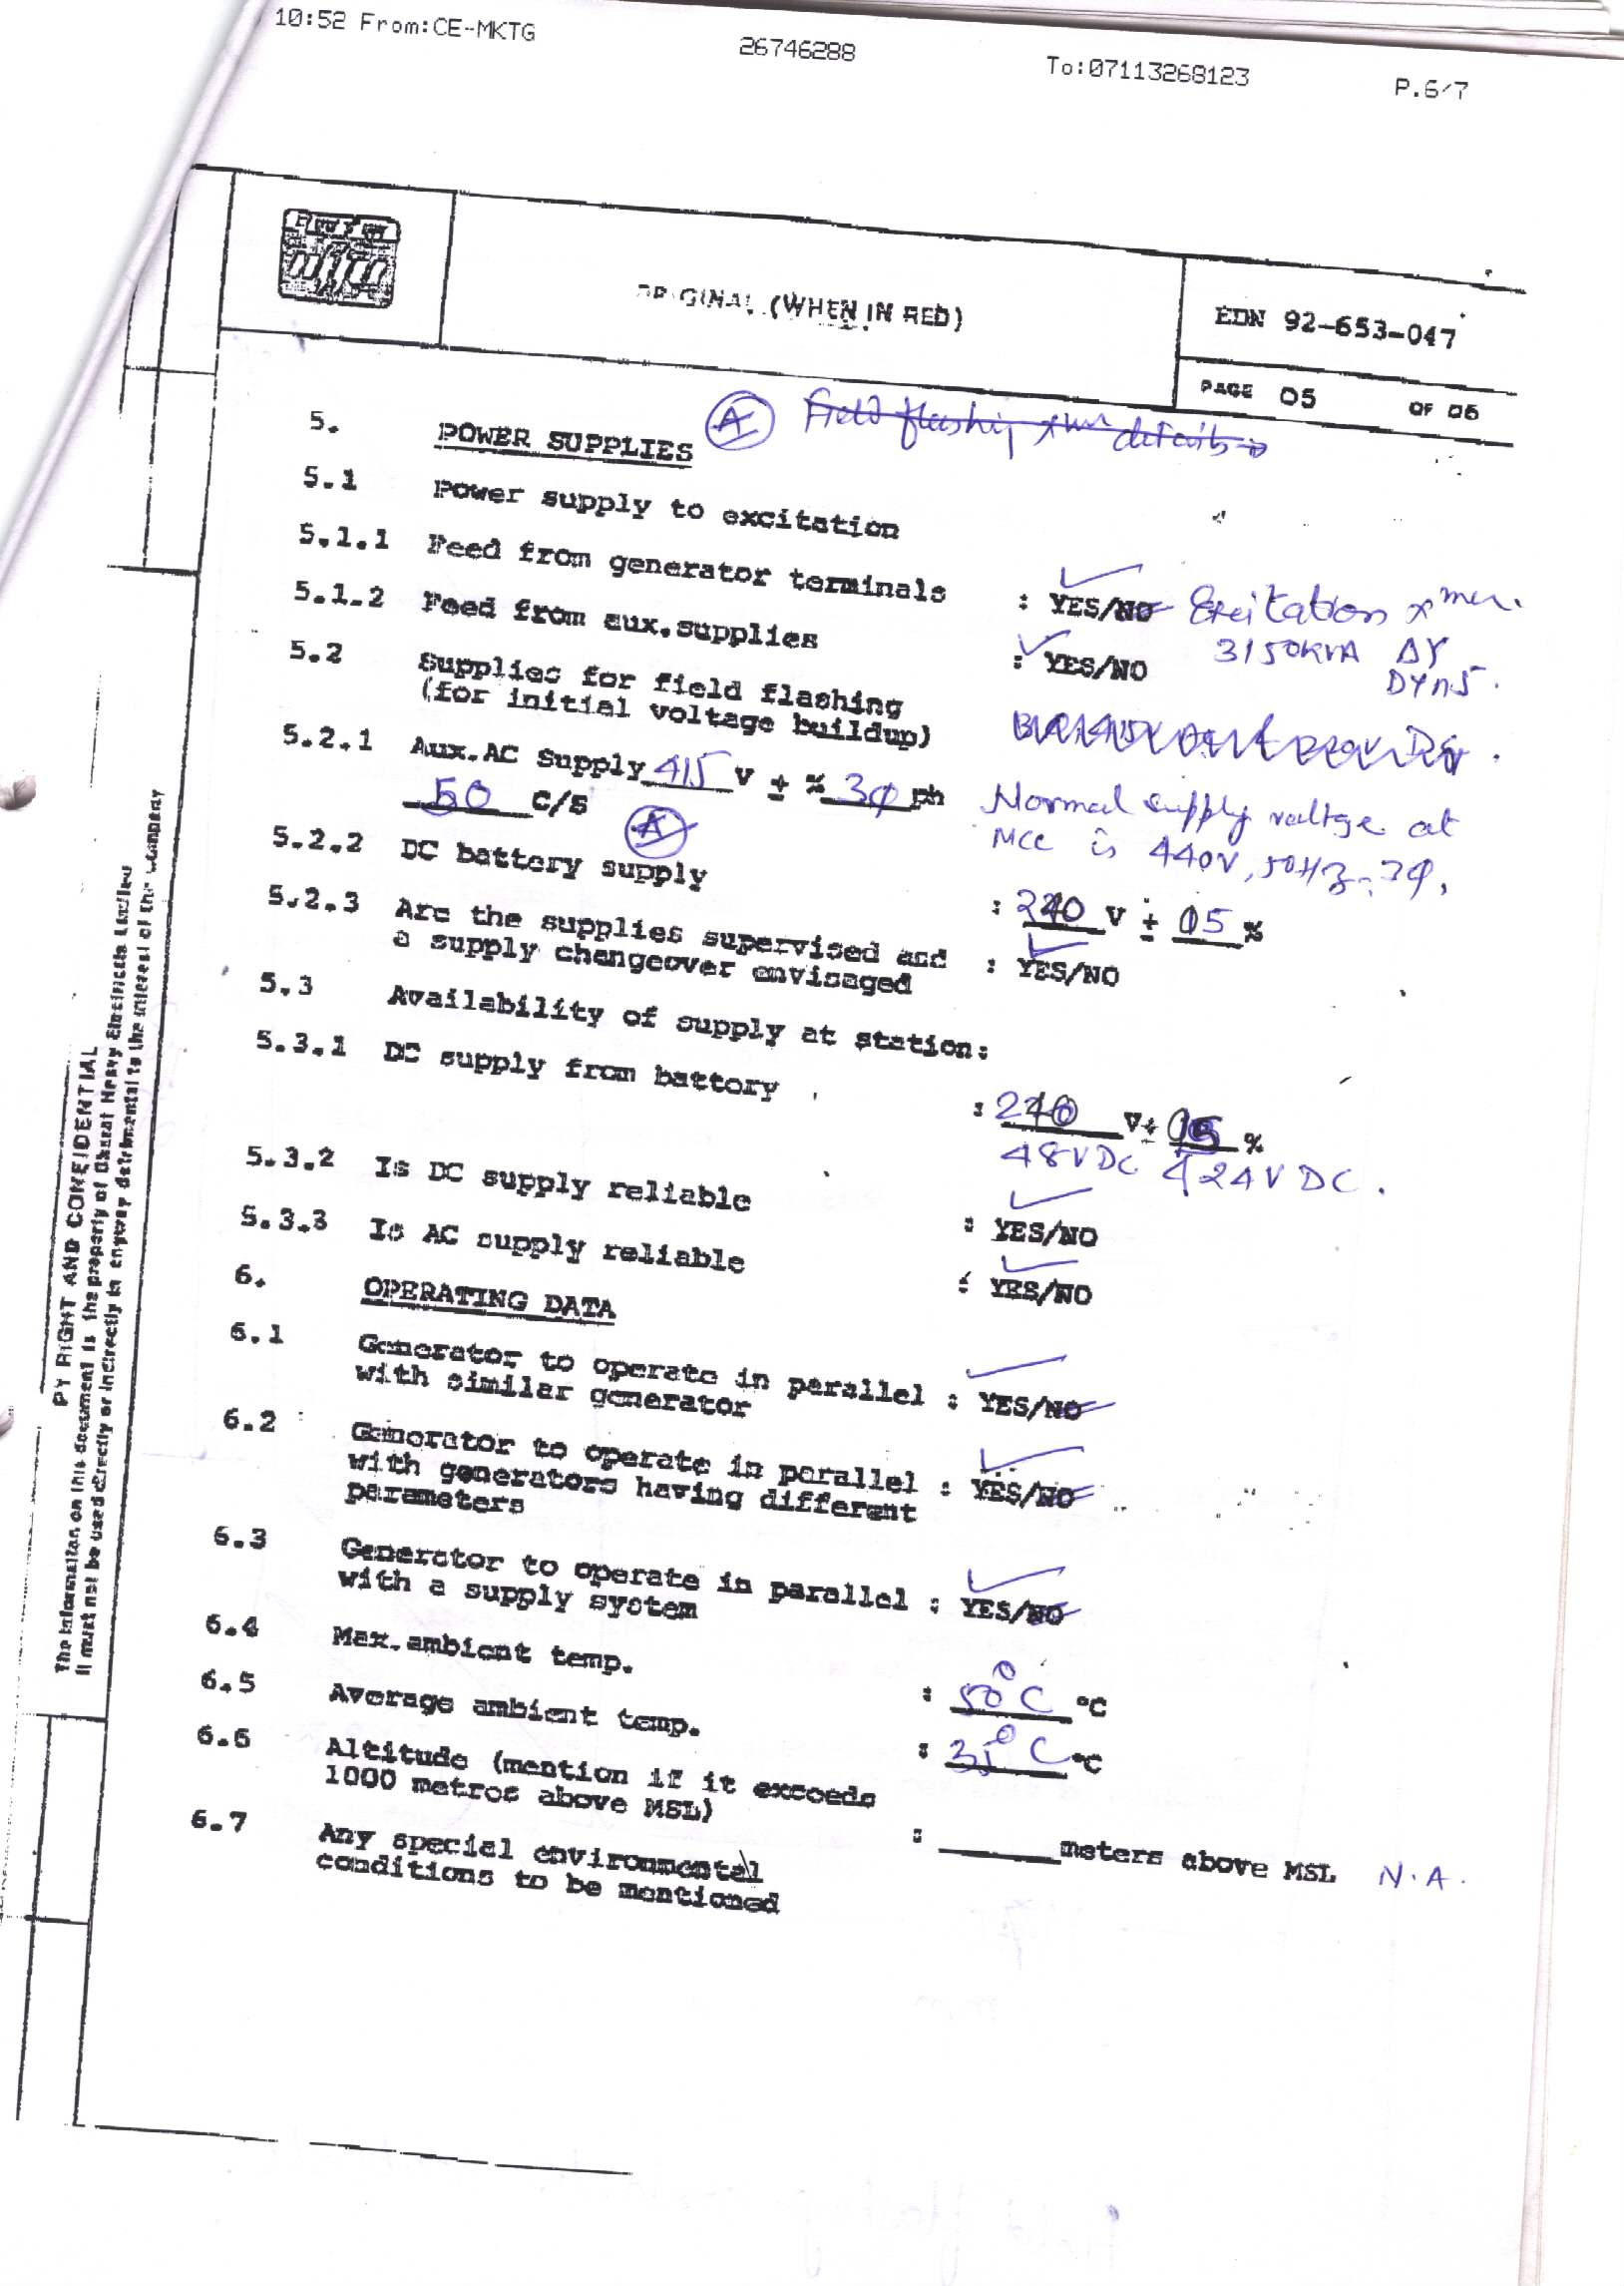 10:52 From:CE-MKTG 26746288 To:07113268123 P.6/7
ORIGINAL (WHEN IN RED)
EDN 92-653-047
PAGE 05 OF 06
5. POWER SUPPLIES (A) Field flashing xmer details
5.1 Power supply to excitation
5.1.1 Feed from generator terminals : YES/NO Excitation xmer.
3150KVA ΔY
DYn5.
5.1.2 Feed from aux.supplies : YES/NO
5.2 Supplies for field flashing
(for initial voltage buildup)
5.2.1 Aux.AC Supply 415 V ± % 3φ ph
50 C/S (A)
Normal supply voltage at
MCC is 440V, 50HZ, 3φ.
5.2.2 DC battery supply : 220 V ± 15 %
5.2.3 Are the supplies supervised and
a supply changeover envisaged : YES/NO
5.3 Availability of supply at station:
5.3.1 DC supply from battery : 220 V± %
48VDC & 24V DC.
5.3.2 Is DC supply reliable : YES/NO
5.3.3 Is AC supply reliable : YES/NO
6. OPERATING DATA
6.1 Generator to operate in parallel : YES/NO
with similar generator
6.2 Generator to operate in parallel : YES/NO
with generators having different
parameters
6.3 Generator to operate in parallel : YES/NO
with a supply system
6.4 Max.ambient temp. : 50°C °C
6.5 Average ambient temp. : 35°C °C
6.6 Altitude (mention if it exceeds
1000 metres above MSL) : ______ meters above MSL N.A.
6.7 Any special environmental
conditions to be mentioned
PY RIGHT AND CONFIDENTIAL
The information on this document is the property of Bharat Heavy Electricals Limited
It must not be used directly or indirectly in anyway detrimental to the interest of the Company